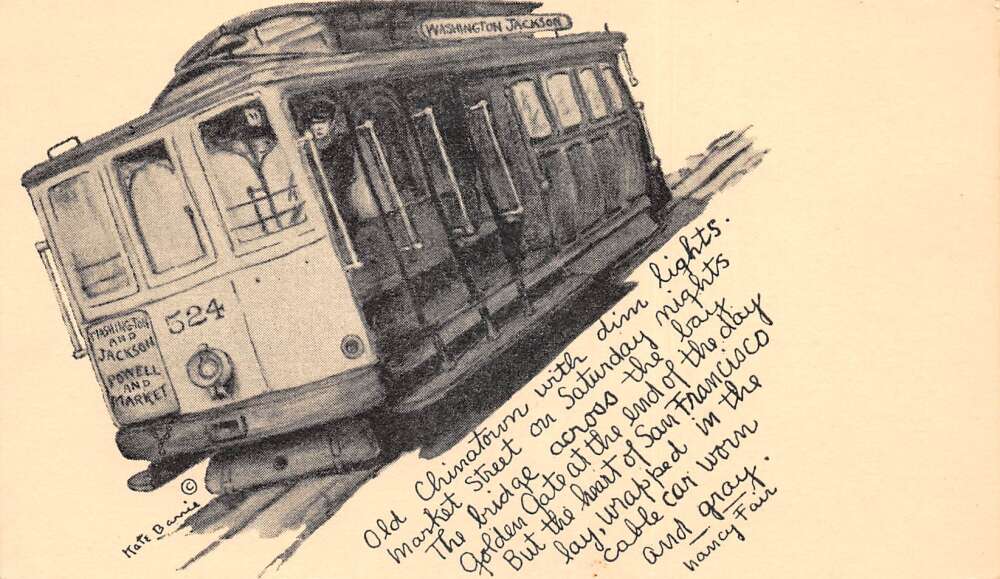 WASHINGTON JACKSON
524
WASHINGTON
AND
JACKSON
POWELL
AND
MARKET
© 
Kate Barrie
Old Chinatown with dim lights.
Market Street on Saturday nights
The bridge across the bay
Golden Gate at the end of the day
But the heart of San Francisco
lay, wrapped in the
cable car worn
and gray.
nancy Fair